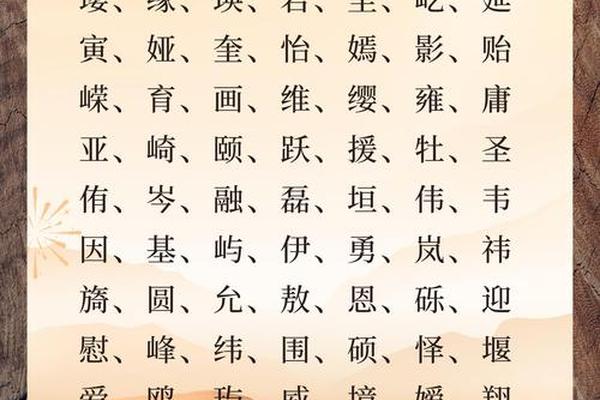 缘、瑛、屹、延
寅、娅、奎、怡、嫣、影、贻
嵘、育、画、维、缨、雍、庸
亚、崎、颐、跃、援、牡、圣
侑、岑、融、磊、垣、伟、韦
因、基、屿、伊、勇、岚、祎
旖、圆、允、敖、恩、砾、迎
慰、峰、纬、围、硕、怿、堰
爱、鸥、威、境、翔